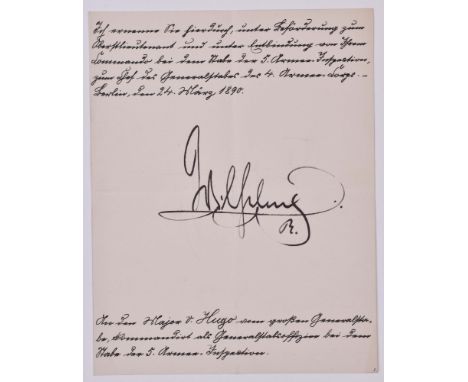 Ich ernenne Sie hierdurch, unter Beförderung zum
Oberstlieutenant und unter Entbindung von Ihrem
Commando bei dem Stabe der 5. Armee-Inspection,
zum Chef des Generalstabes des 4. Armee-Corps. –
Berlin, den 24. März 1890.
Wilhelm
R.
An den Major v. Hugo vom großen Generalsta-
be, kommandirt als Generalstabsoffizier bei dem
Stabe der 5. Armee-Inspection.